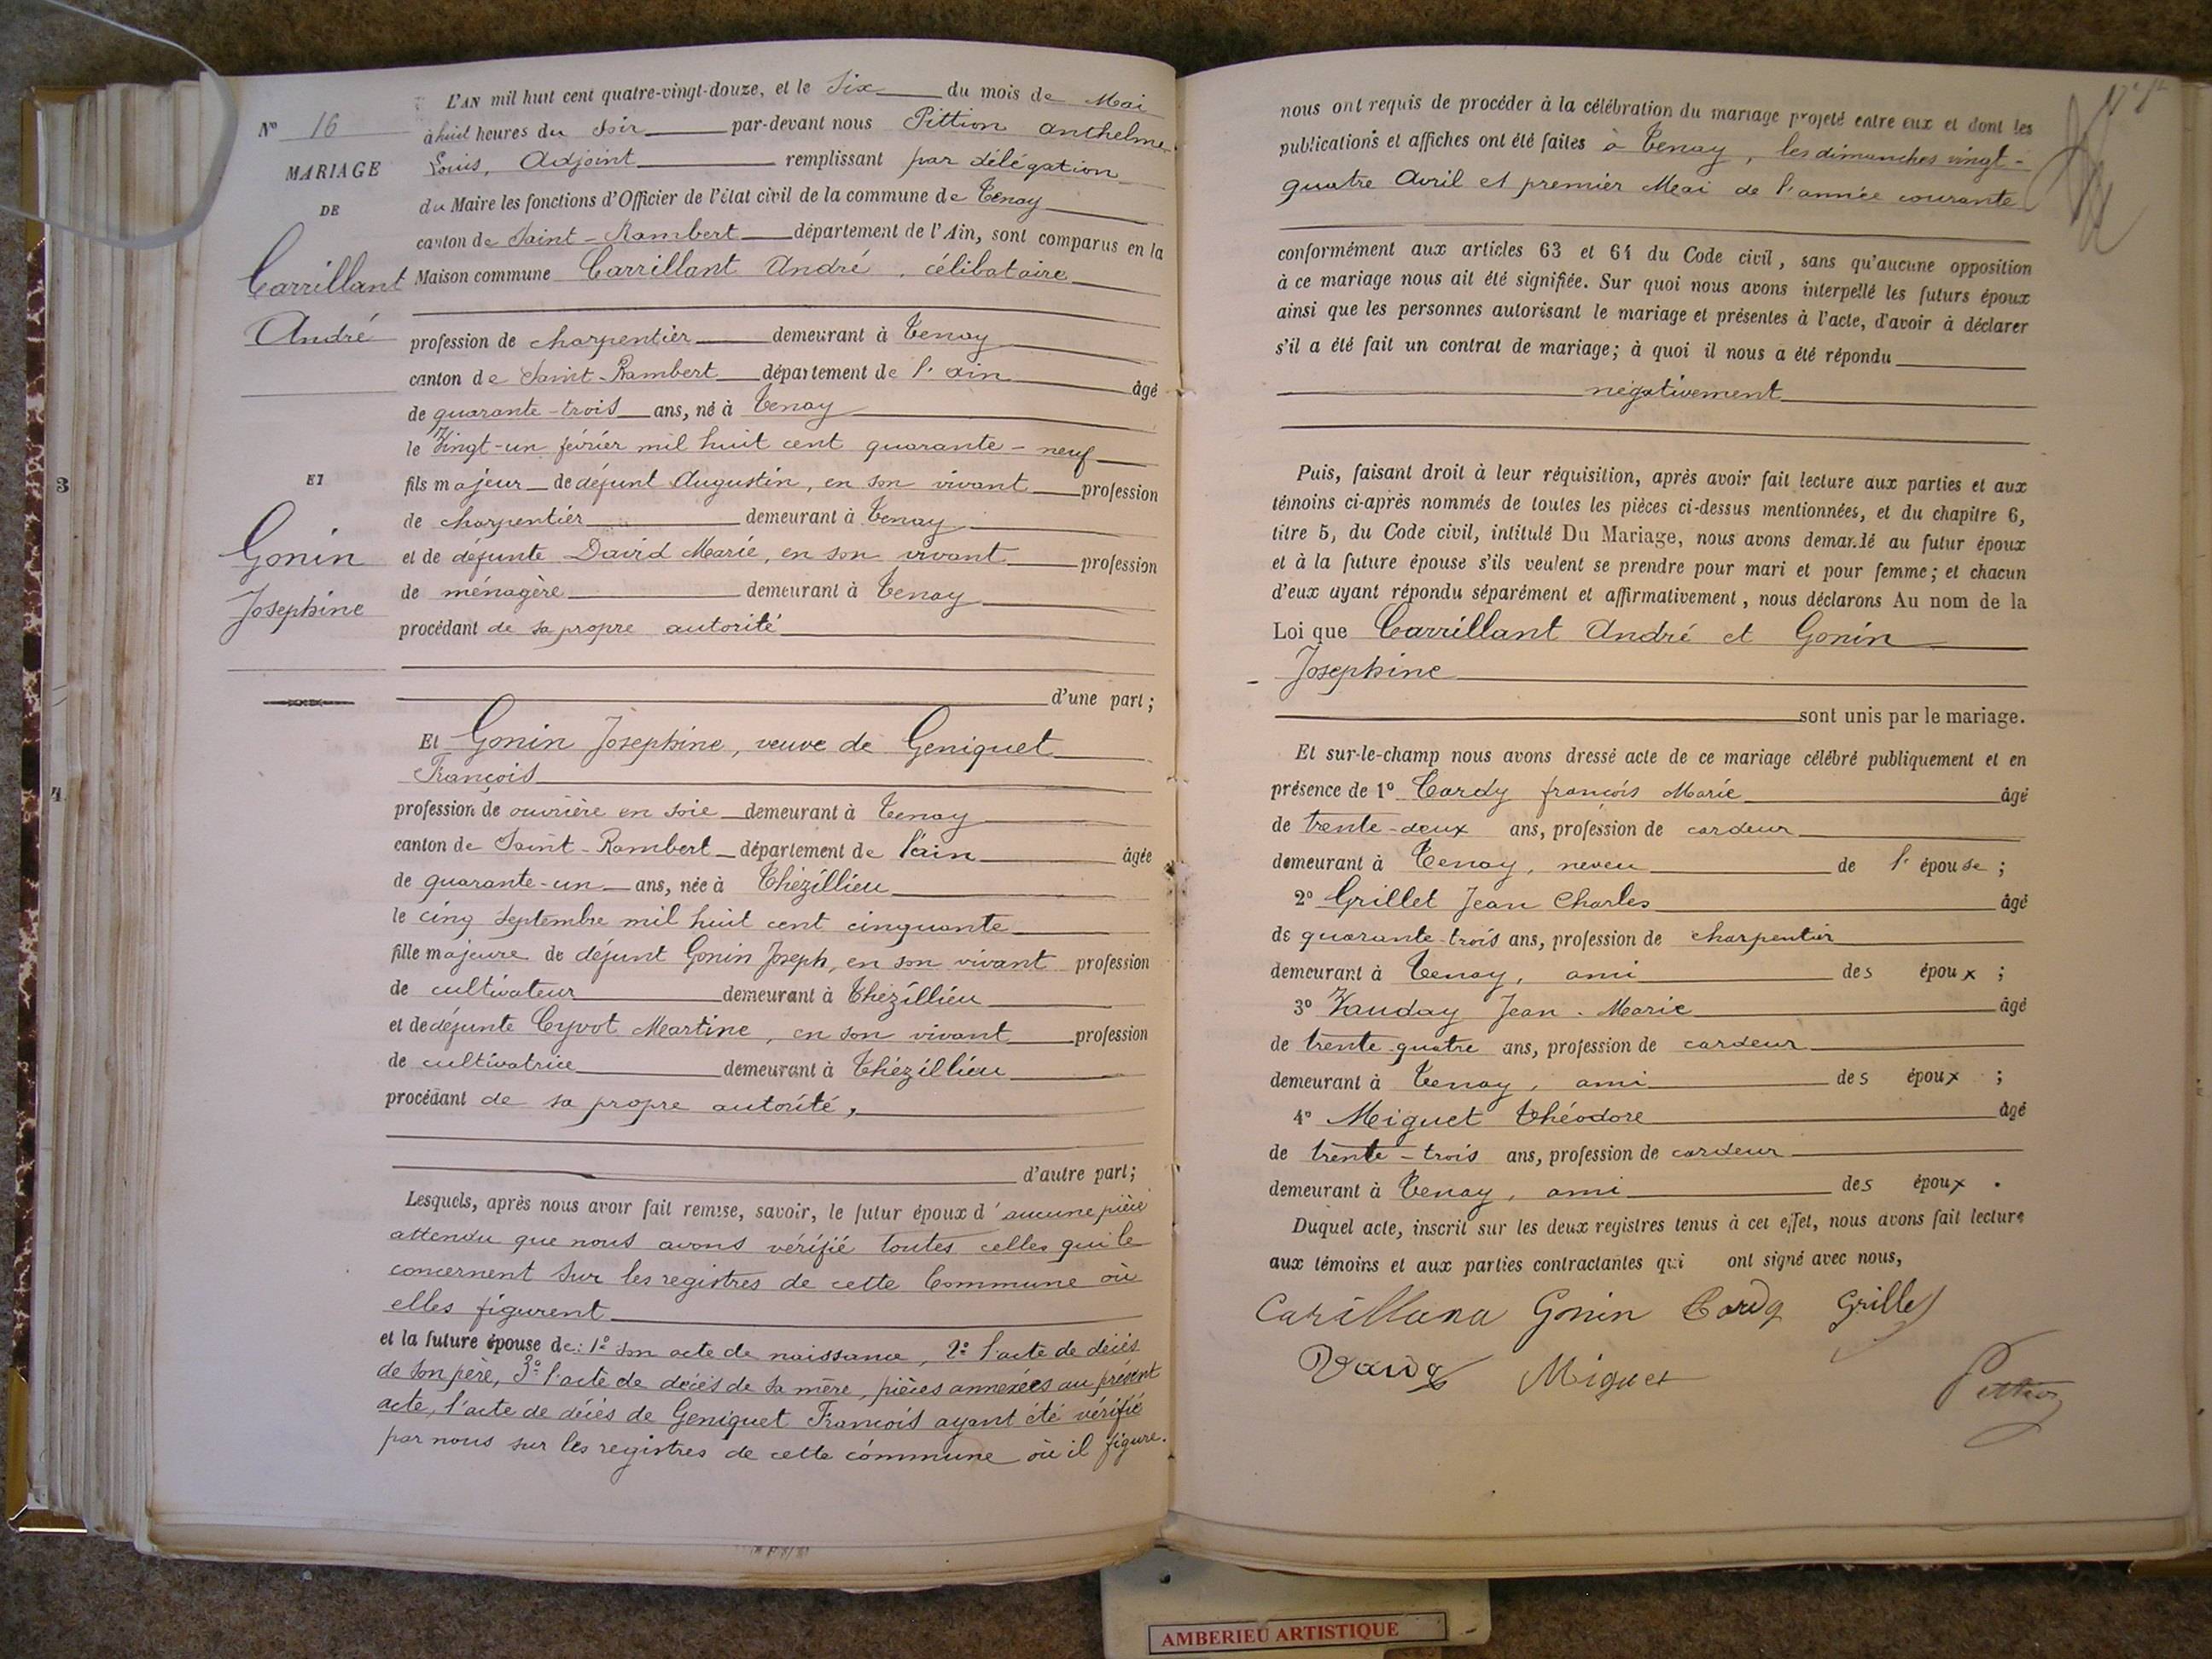 N° 16
MARIAGE
DE
Carrillant
André
ET
Gonin
Josephine
3
4
L'AN mil huit cent quatre-vingt-douze, et le Six du mois de Mai
à huit heures du soir par-devant nous Pittion anthelme
Louis, Adjoint remplissant par délégation
du Maire les fonctions d'Officier de l'état civil de la commune de Tenay
canton de Saint-Rambert département de l'Ain, sont comparus en la
Maison commune Carrillant André, célibataire
profession de charpentier demeurant à Tenay
canton de Saint-Rambert département de l'ain âgé
de quarante-trois ans, né à Tenay
le Vingt-un février mil huit cent quarante-neuf
fils majeur de défunt Augustin, en son vivant profession
de charpentier demeurant à Tenay
et de défunte David Marie, en son vivant profession
de ménagère demeurant à Tenay
procédant de sa propre autorité
d'une part;
Et Gonin Josephine, veuve de Geniquet
François
profession de ouvrière en soie demeurant à Tenay
canton de Saint-Rambert département de l'ain âgée
de quarante-un ans, née à Thézillieu
le cinq septembre mil huit cent cinquante
fille majeure de défunt Gonin Joseph, en son vivant profession
de cultivateur demeurant à Thézillieu
et de défunte Cyvot Martine, en son vivant profession
de cultivatrice demeurant à Thézillieu
procédant de sa propre autorité,
d'autre part;
Lesquels, après nous avoir fait remise, savoir, le futur époux d'aucune pièce
attendu que nous avons vérifié toutes celles qui le
concernent sur les registres de cette Commune où
elles figurent
et la future épouse de: 1° son acte de naissance, 2° l'acte de décès
de son père, 3° l'acte de décès de sa mère, pièces annexées au présent
acte, l'acte de décès de Geniquet François ayant été vérifié
par nous sur les registres de cette commune où il figure.
nous ont requis de procéder à la célébration du mariage projeté entre eux et dont les
publications et affiches ont été faites à Tenay, les dimanches vingt-
quatre Avril et premier Mai de l'année courante
conformément aux articles 63 et 64 du Code civil, sans qu'aucune opposition
à ce mariage nous ait été signifiée. Sur quoi nous avons interpellé les futurs époux
ainsi que les personnes autorisant le mariage et présentes à l'acte, d'avoir à déclarer
s'il a été fait un contrat de mariage; à quoi il nous a été répondu
négativement
Puis, faisant droit à leur réquisition, après avoir fait lecture aux parties et aux
témoins ci-après nommés de toutes les pièces ci-dessus mentionnées, et du chapitre 6,
titre 5, du Code civil, intitulé Du Mariage, nous avons demandé au futur époux
et à la future épouse s'ils veulent se prendre pour mari et pour femme; et chacun
d'eux ayant répondu séparément et affirmativement, nous déclarons Au nom de la
Loi que Carrillant André et Gonin
Josephine
sont unis par le mariage.
Et sur-le-champ nous avons dressé acte de ce mariage célébré publiquement et en
présence de 1° Cardy françois Marie âgé
de trente-deux ans, profession de cardeur
demeurant à Tenay, neveu de l'épouse;
2° Grillet Jean Charles âgé
de quarante-trois ans, profession de charpentier
demeurant à Tenay, ami des époux;
3° Vauday Jean-Marie âgé
de trente-quatre ans, profession de cardeur
demeurant à Tenay, ami des époux;
4° Miguet Théodore âgé
de trente-trois ans, profession de cardeur
demeurant à Tenay, ami des époux.
Duquel acte, inscrit sur les deux registres tenus à cet effet, nous avons fait lecture
aux témoins et aux parties contractantes qui ont signé avec nous,
Gonin Cardy Grillet
Miguet
Pittion
AMBERIEU ARTISTIQUE